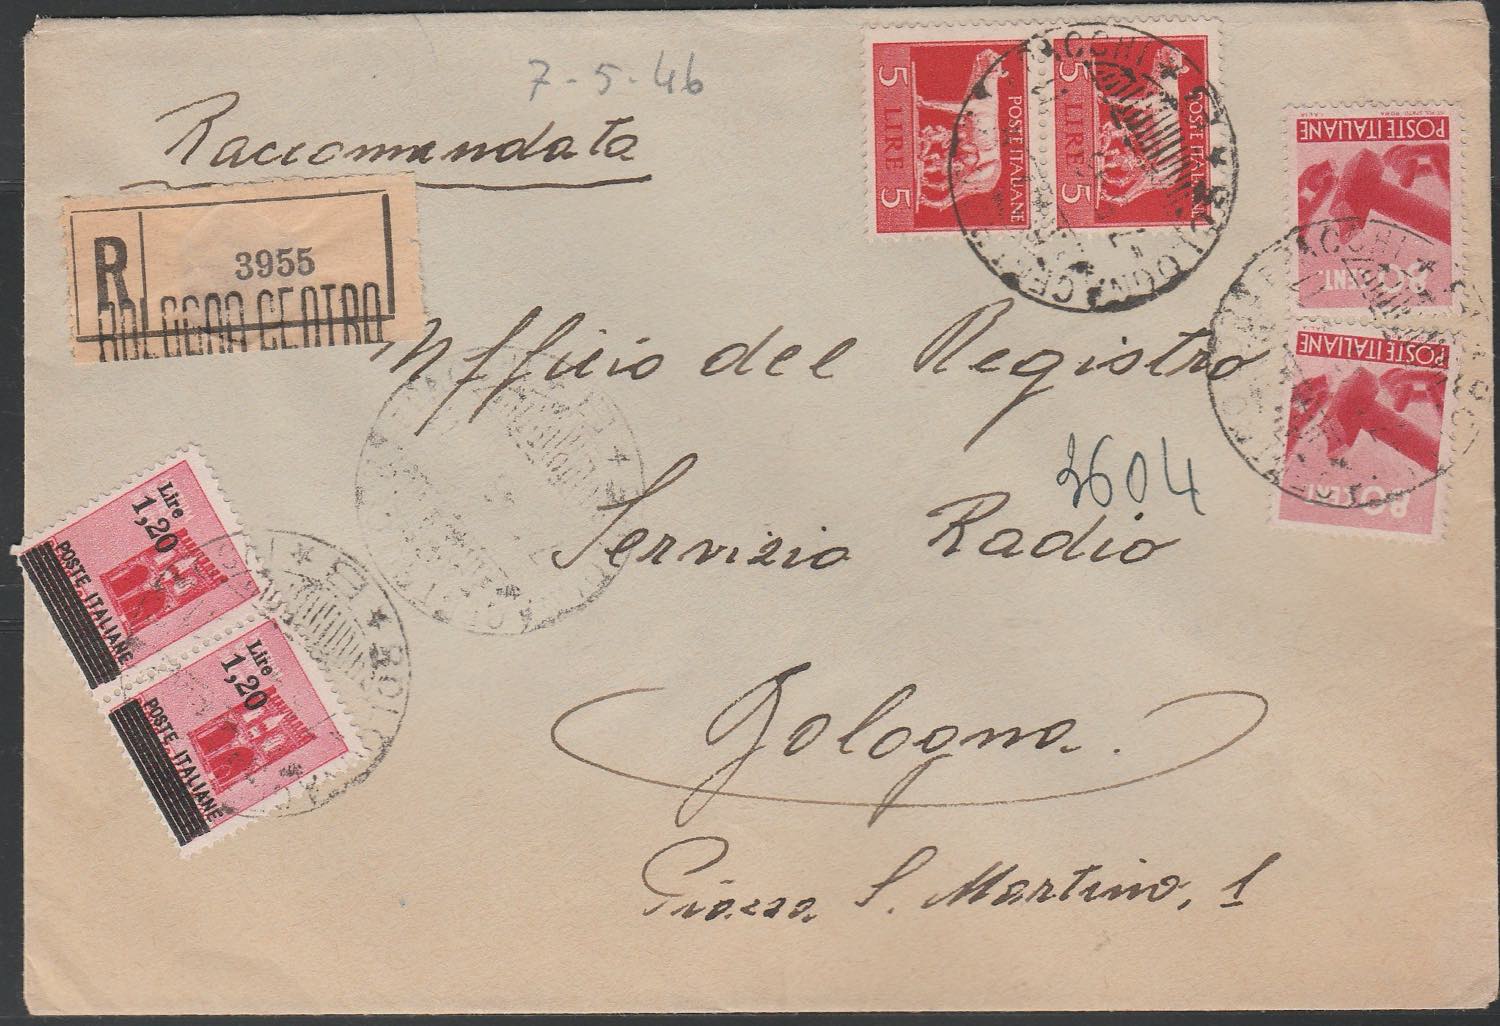 7-5-46
Raccomandata
R
3955
BOLOGNA CENTRO
5 LIRE 5
POSTE ITALIANE
5 LIRE 5
POSTE ITALIANE
POSTE ITALIANE
80 CENT.
POSTE ITALIANE
80 CENT.
Ufficio del Registro
3604
Servizio Radio
Bologna.
Piazza S. Martino, 1
Lire
1,20
POSTE ITALIANE
Lire
1,20
POSTE ITALIANE